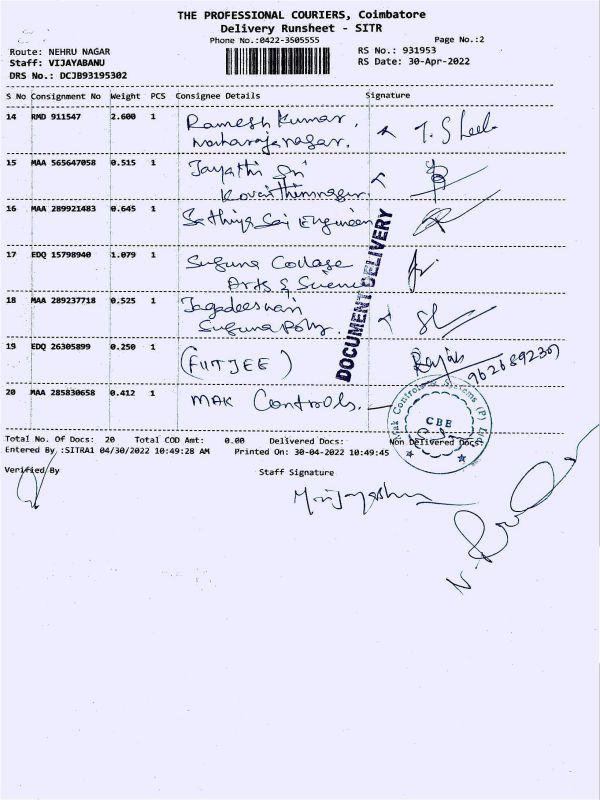 THE PROFESSIONAL COURIERS, Coimbatore
Delivery Runsheet - SITR
Phone No.:0422-3505555
Page No.:2
Route: NEHRU NAGAR
RS No.: 931953
Staff: VIJAYABANU
RS Date: 30-Apr-2022
DRS No.: DCJB93195302
S No Consignment No Weight PCS Consignee Details Signature
14 RMD 911547 2.600 1 Ramesh Kumar, T. Sheela
Maharajanagar.
15 MAA 565647058 0.515 1 Jayathi Sri
Kovaithirunagar
16 MAA 289921483 0.645 1 Sathiya Sai Engineer
17 EDQ 15798940 1.079 1 Suguna Collage
Arts & Science
18 MAA 289237718 0.525 1 Jagadeeswari
Suguna Poly.
DOCUMENT DELIVERY
19 EDQ 26305899 0.250 1 (FIITJEE)
20 MAA 285830658 0.412 1 MAK Controls.
Mak Controls & Systems (P) Ltd.
CBE
Total No. Of Docs: 20 Total COD Amt: 0.00 Delivered Docs: Non Delivered Docs:
Entered By :SITRA1 04/30/2022 10:49:28 AM Printed On: 30-04-2022 10:49:45
Verified By Staff Signature